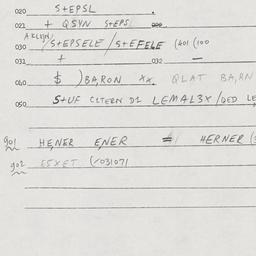 020 S+EPSL
021 + QSYN S+EPSL
030 /S+EPSELE /S+EFELE (401 (100
031 + 032 —
040 $ ) BA,RON XX. QLAT BA,RN
050 S+UF CLTERN D1 LEMAL3X /DED LE
901 HE,NER ENER ≠1 HERNER
902 (/031071